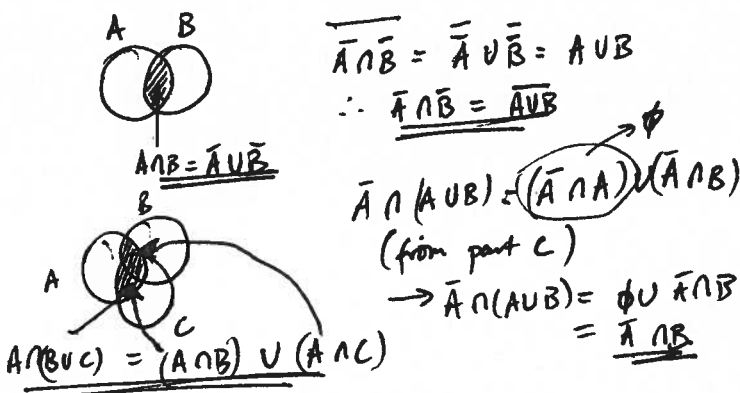 A B
A∩B = Ā∪B̄
B
A
C
A∩(B∪C) = (A∩B) ∪ (A∩C)
\overline{Ā∩B̄} = \bar{Ā} ∪ \bar{B̄} = A∪B
∴ Ā∩B̄ = \overline{A∪B}
ϕ
Ā∩(A∪B) = (Ā∩A)∪(Ā∩B)
(from part C)
→ Ā∩(A∪B) = ϕ∪ Ā∩B
= Ā∩B